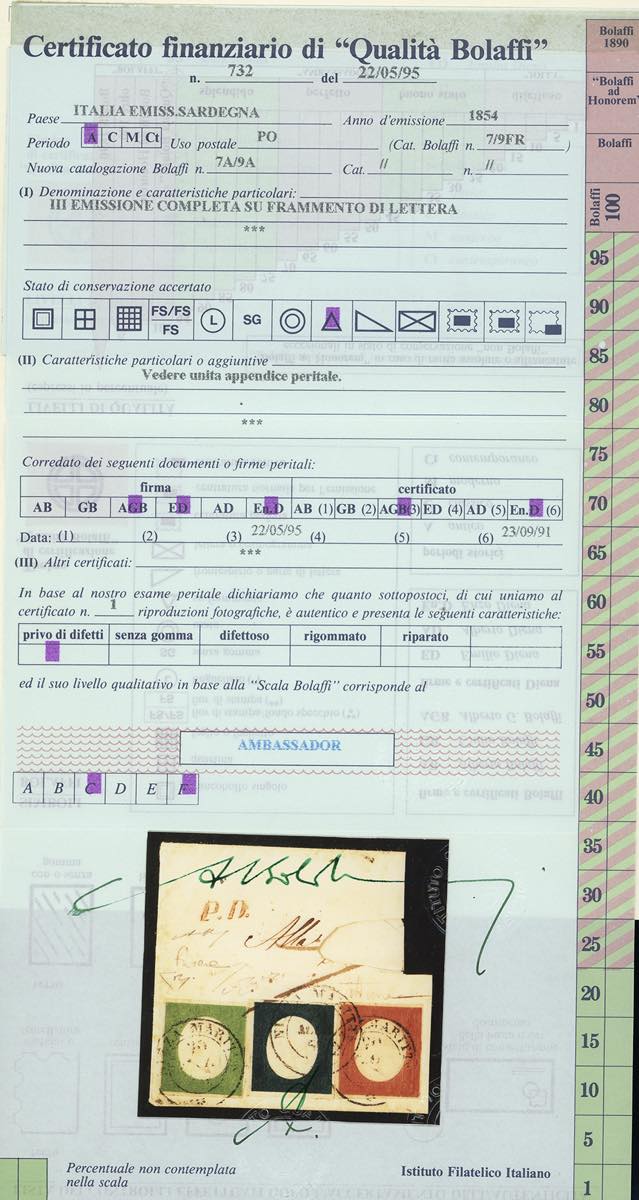 Certificato finanziario di “Qualità Bolaffi”
n. 732 del 22/05/95
Paese ITALIA EMISS.SARDEGNA Anno d'emissione 1854
Periodo A C M Ct Uso postale PO (Cat. Bolaffi n. 7/9FR )
Nuova catalogazione Bolaffi n. 7A/9A Cat. // n. //
(I) Denominazione e caratteristiche particolari:
III EMISSIONE COMPLETA SU FRAMMENTO DI LETTERA
***
Stato di conservazione accertato
FS/FS
FS L SG
(II) Caratteristiche particolari o aggiuntive
Vedere unita appendice peritale.
***
Corredato dei seguenti documenti o firme peritali:
firma certificato
AB GB AGB ED AD En.D AB (1) GB (2) AGB(3) ED (4) AD (5) En.D (6)
Data: (1) (2) (3) 22/05/95 (4) (5) (6) 23/09/91
(III) Altri certificati: ***
In base al nostro esame peritale dichiariamo che quanto sottopostoci, di cui uniamo al
certificato n. 1 riproduzioni fotografiche, è autentico e presenta le seguenti caratteristiche:
privo di difetti senza gomma difettoso rigommato riparato
ed il suo livello qualitativo in base alla “Scala Bolaffi” corrisponde al
AMBASSADOR
A B C D E F
P.D.
Percentuale non contemplata
nella scala
Istituto Filatelico Italiano
Bolaffi
1890
“Bolaffi
ad
Honorem”
Bolaffi
Bolaffi
100
95
90
85
80
75
70
65
60
55
50
45
40
35
30
25
20
15
10
5
1